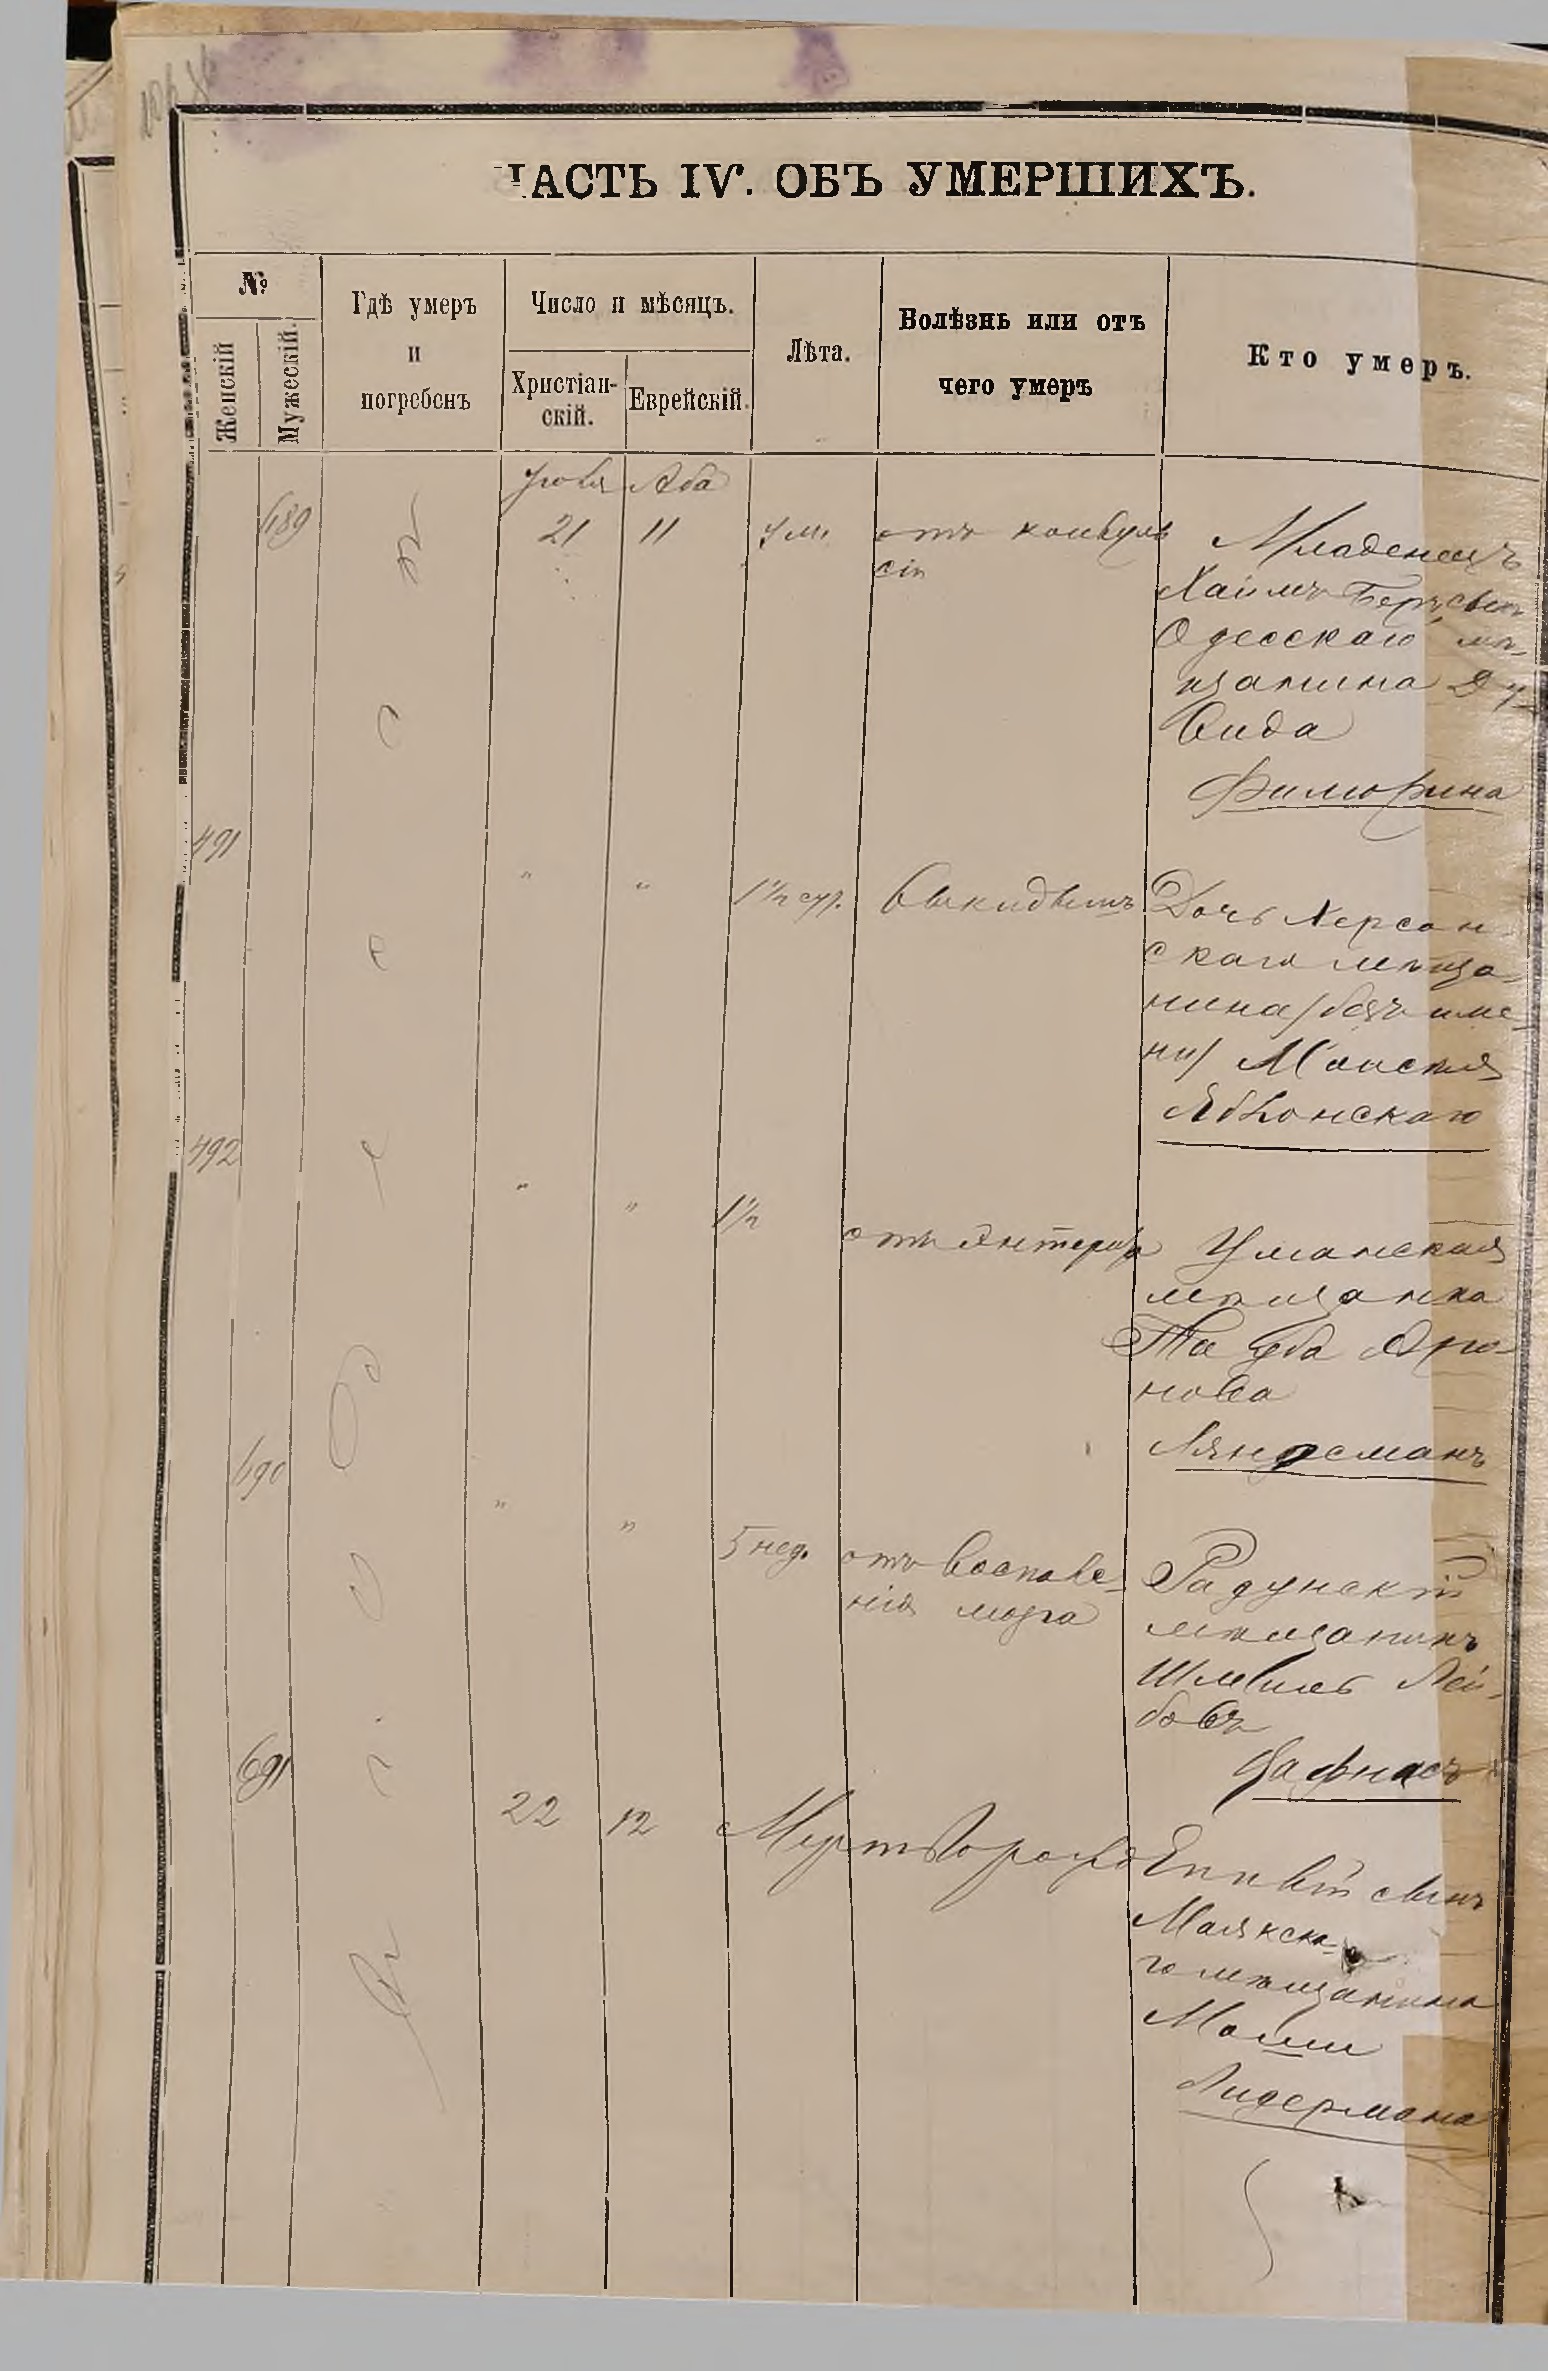 ЧАСТЬ IV. ОБЪ УМЕРШИХЪ.
№
Женскій
Мужескій.
Гдѣ умеръ
и
погребенъ
Число и мѣсяцъ.
Христіан-
скій.
Еврейскій.
Лѣта.
Болѣзнь или отъ
чего умеръ
Кто умеръ.
Въ Одессѣ
Іюля Аба
689 21 11 7 м. отъ конвуль
сіи
Младенецъ
Хаимъ Беръ, сынъ
Одесскаго мѣ-
щанина Ду
вида
491 " " 1½ сут. выкидышъ
Дочь Херсон
скаго мѣща-
нина /безъ име-
ни/ Моисея
Яблонскаго
492 " " 1½
Уманская
мѣщанка
Тауба Аро-
нова
Ляндсманъ
690 " " 5 нед. отъ воспале-
нія мозга
Радунскій
мѣщанинъ
Шмвиль Лей-
бовъ
691 22 12 Мертворожд
сынъ
Маякска-
го мѣщанина
Мошки
Лидермана